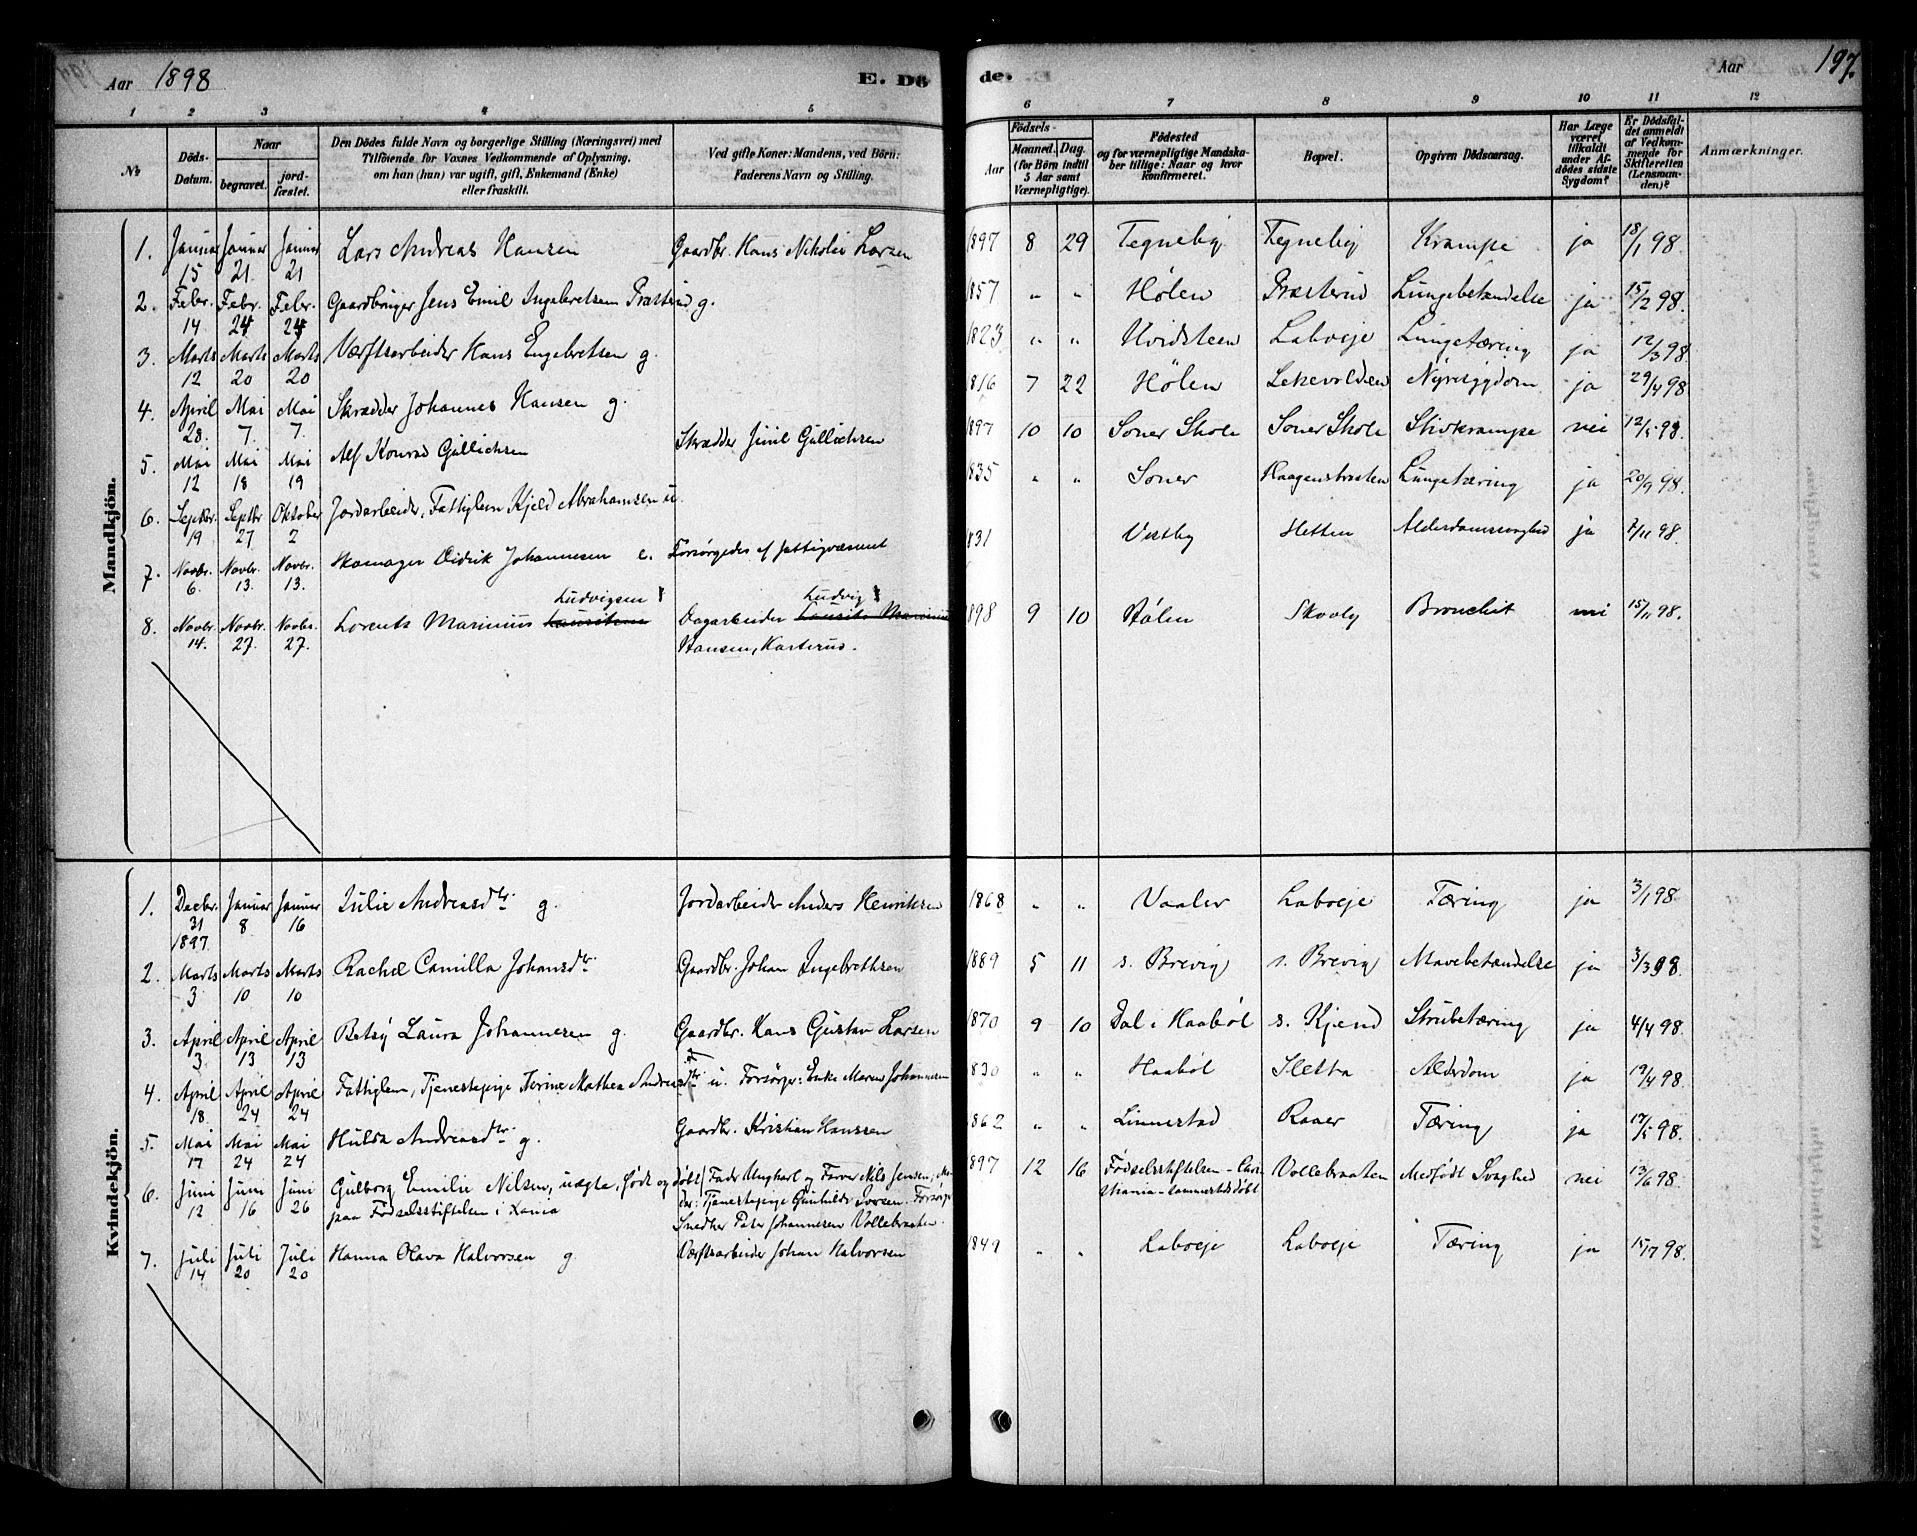 Aar 1898 E. Dö de. Aar 197.
1 2 3 4 5 6 7 8 9 10 11 12
№ Döds-Datum. Naar begravet. jord-fæstet. Den Dödes fulde Navn og borgerlige Stilling (Næringsvei) med Tilføiende for Voxnes Vedkommende af Oplysning. om han (hun) var ugift, gift, Enkemand (Enke) eller fraskilt. Ved gifte Koner: Mandens, ved Börn: Faderens Navn og Stilling. Födsels- Aar Maaned. Dag. (for Börn indtil 5 Aar samt Værnepligtige). Födested og for værnepligtige Mandska-ber tillige: Naar og hvor konfirmeret. Bopæl. Opgiven Dödsaarsag. Har Læge været tilkaldt under Af-dödes sidste Sygdom? Er Dödsfal-det anmeldt af Vedkom-mende for Skifteretten (Lensman-den)? Anmærkninger.
Mandkjön.
1. Januar 15 Januar 21. Januar 21 Lars Andreas Hansen Gaardbr. Hans Nikolai Larsen 1897 8 29 Tegneby Tegneby Krampe ja 18/1 98.
2. Febr. 14 Febr. 24 Febr. 24 Gaardbruger Jens Emil Ingebretsen Præsterud g. 1857 " " Hølen Præsterud Lungebetændelse ja 15/2 98.
3. Marts 12 Marts 20 Marts 20 Værftsarbeider Hans Engebretsen g. 1823 " " Hvidsteen Laboeje Lungetæring ja 12/3 98
4. April 28. Mai 7. Mai 7. Skrædder Johannes Hansen g. 1816 7 22 Hølen Lekevolden Nyresygdom ja 29/4 98.
5. Mai 12 Mai 18 Mai 19 Alf Konrad Gullichsen Skrædder Juul Gullichsen 1897 10 10 Soner Skole Soner Skole Stivkrampe nei 12/5 98.
6. Septbr. 19 Septbr 27 Oktober 2 Jordarbeider, Fattiglem Kjeld Abrahamsen u. 1835 " " Soner Haagenstraten Lungetæring ja 20/9 98.
7. Novbr. 6. Novbr. 13. Novbr. 13. Skomager Didrik Johannesen e. Forsørgedes af fattigvæsenet 1831 Vestby Sletten Alderdomssvaghed ja 7/11 98.
8. Novbr. 14. Novbr. 27. Novbr. 27. Lorentz Marinius Ludvigsen Dagarbeider Ludvig Hansen, Kasterud. 1898 9 10 Hølen Skovly Bronchit nei 15/11 98.
Kvindekjön.
1. Decbr. 31 1897 Januar 8 Januar 16 Julie Andreasdtr. g. Jordarbeider Anders Henriksen 1868 " " Vaaler Laboeje Tæring ja 3/1 98.
2. Marts 3 Marts 10 Marts 10 Rachel Camilla Johansdtr. Gaardbr. Johan Ingebrethsen 1889 5 11 s. Brevig s. Brevig Mavebetændelse ja 3/3 98.
3. April 3 April 13 April 13 Betsy Laura Johannesen g. Gaardbr. Hans Gustav Larsen 1870 9 10 Dal i Haabøl s. Kjend Strubetæring ja 4/4 98.
4. April 18 April 24 April 24 Fattiglem, Tjenestepige Terine Mathea Andreasdtr. u. Forsørger: Enke Maren Johannesen 1830 " " Haabøl Sletta Alderdom ja 19/4 98.
5. Mai 17 Mai 24 Mai 24 Hulda Andreasdtr. g. Gaardbr. Kristian Hanssen 1862 " " Linnestad Raaer Tæring ja 17/5 98.
6. Juni 12 Juni 16 Juni 26 Gulborg Emilie Nilsen, uægte, født og døbt paa Fødselsstiftelsen i Xania Fader Ungkarl og Farver Nils Jensen, Moder: Tjenestepige Gunhild Iversen. Forsørger Snedker Peter Johannesen Vollebraaten. 1897 12 16 Fødselsstiftelsen - Christiania - sammesteds døbt Vollebraaten Medfødt Svaghed nei 13/6 98.
7. Juli 14 Juli 20 Juli 20 Hanna Olava Halvorsen g Værftsarbeider Johan Halvorsen 1849 " " Laboeje Laboeje Tæring ja 15/7 98.